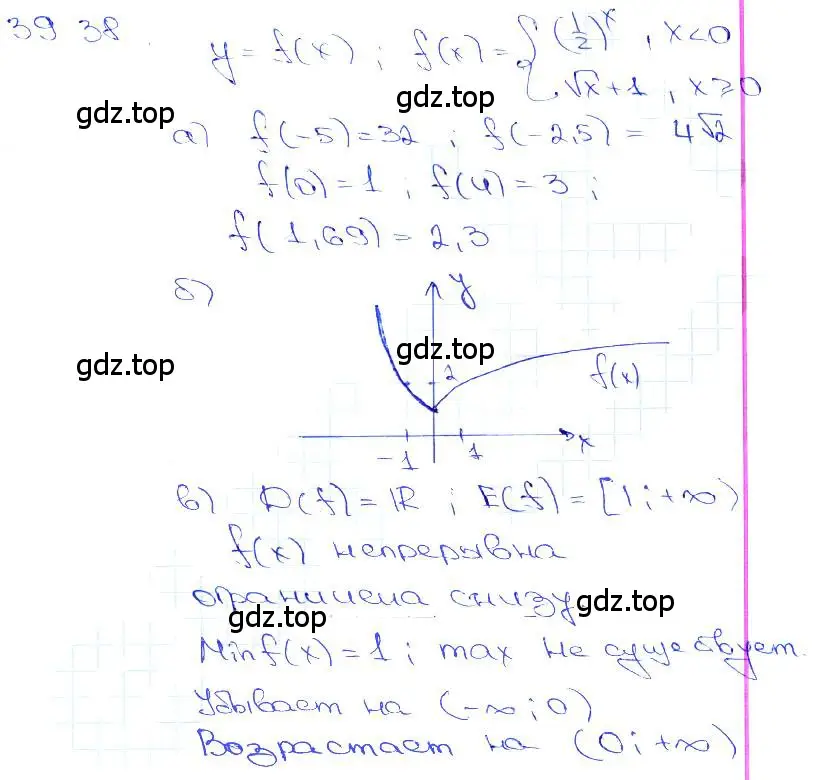 39 38. y = f(x) ; f(x) = { (1/2)^x , x<0
√x + 1 , x ≥ 0
gdz.top gdz.top
а) f(-5) = 32 ; f(-2,5) = 4√2
f(0) = 1 ; f(4) = 3 ;
f(1,69) = 2,3
б) y
gdz.top gdz.top
2 f(x)
-1 1 x
в) D(f) = R ; E(f) = [1; +∞)
f(x) непрерывна
ограничена снизу
gdz.top gdz.top
Min f(x) = 1 ; max не существует.
Убывает на (-∞; 0)
Возрастает на (0; +∞)